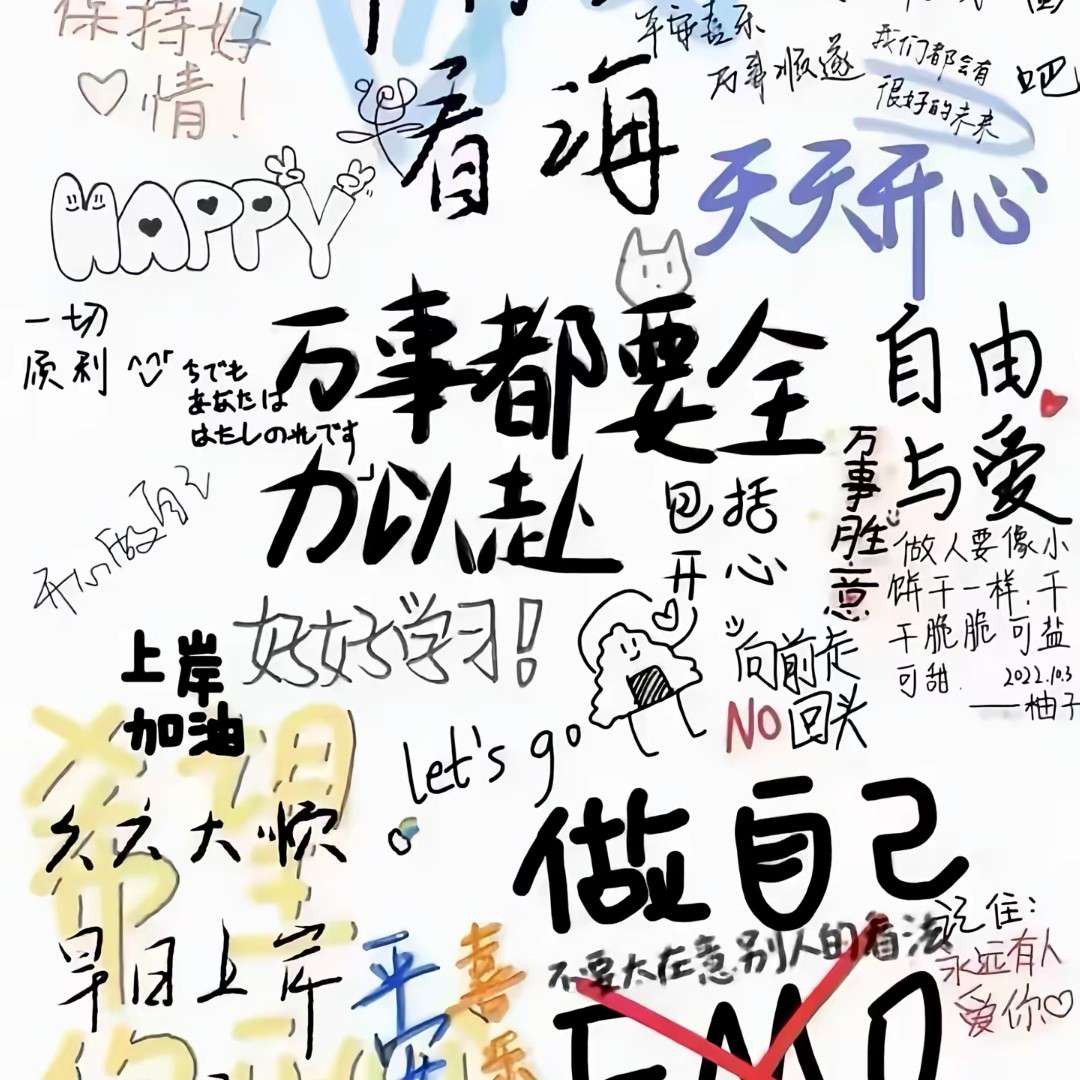 保持好
情！
看海
平安喜乐
万事顺遂
我们都会有
很好的未来
吧
HAPPY
天天开心
一切
顺利
ちでも
あなたは
はたしのれです
万事都要全
力以赴
包括
开心
自由
与爱
万事胜意
做人要像小
饼干一样，干
干脆脆可盐
可甜.
2022.10.3
——柚子
好好学习！
上岸
加油
let's go
向前走
NO回头
久六大顺
早日上岸
希望
平安
喜乐
做自己
不要太在意别人的看法
EMO
记住：
永远有人
爱你♡